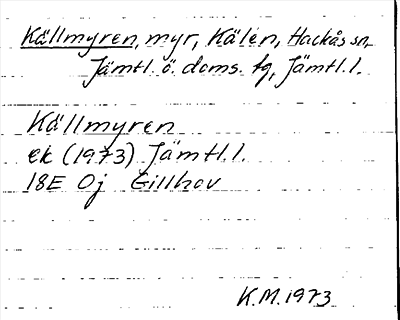 Källmyren, myr, Kälen, Hackås sn,
Jämtl. ö. doms. tg, Jämtl. l.
Källmyren
ek (1973) Jämtl. l.
18E 0j Gillhov
K.M. 1973